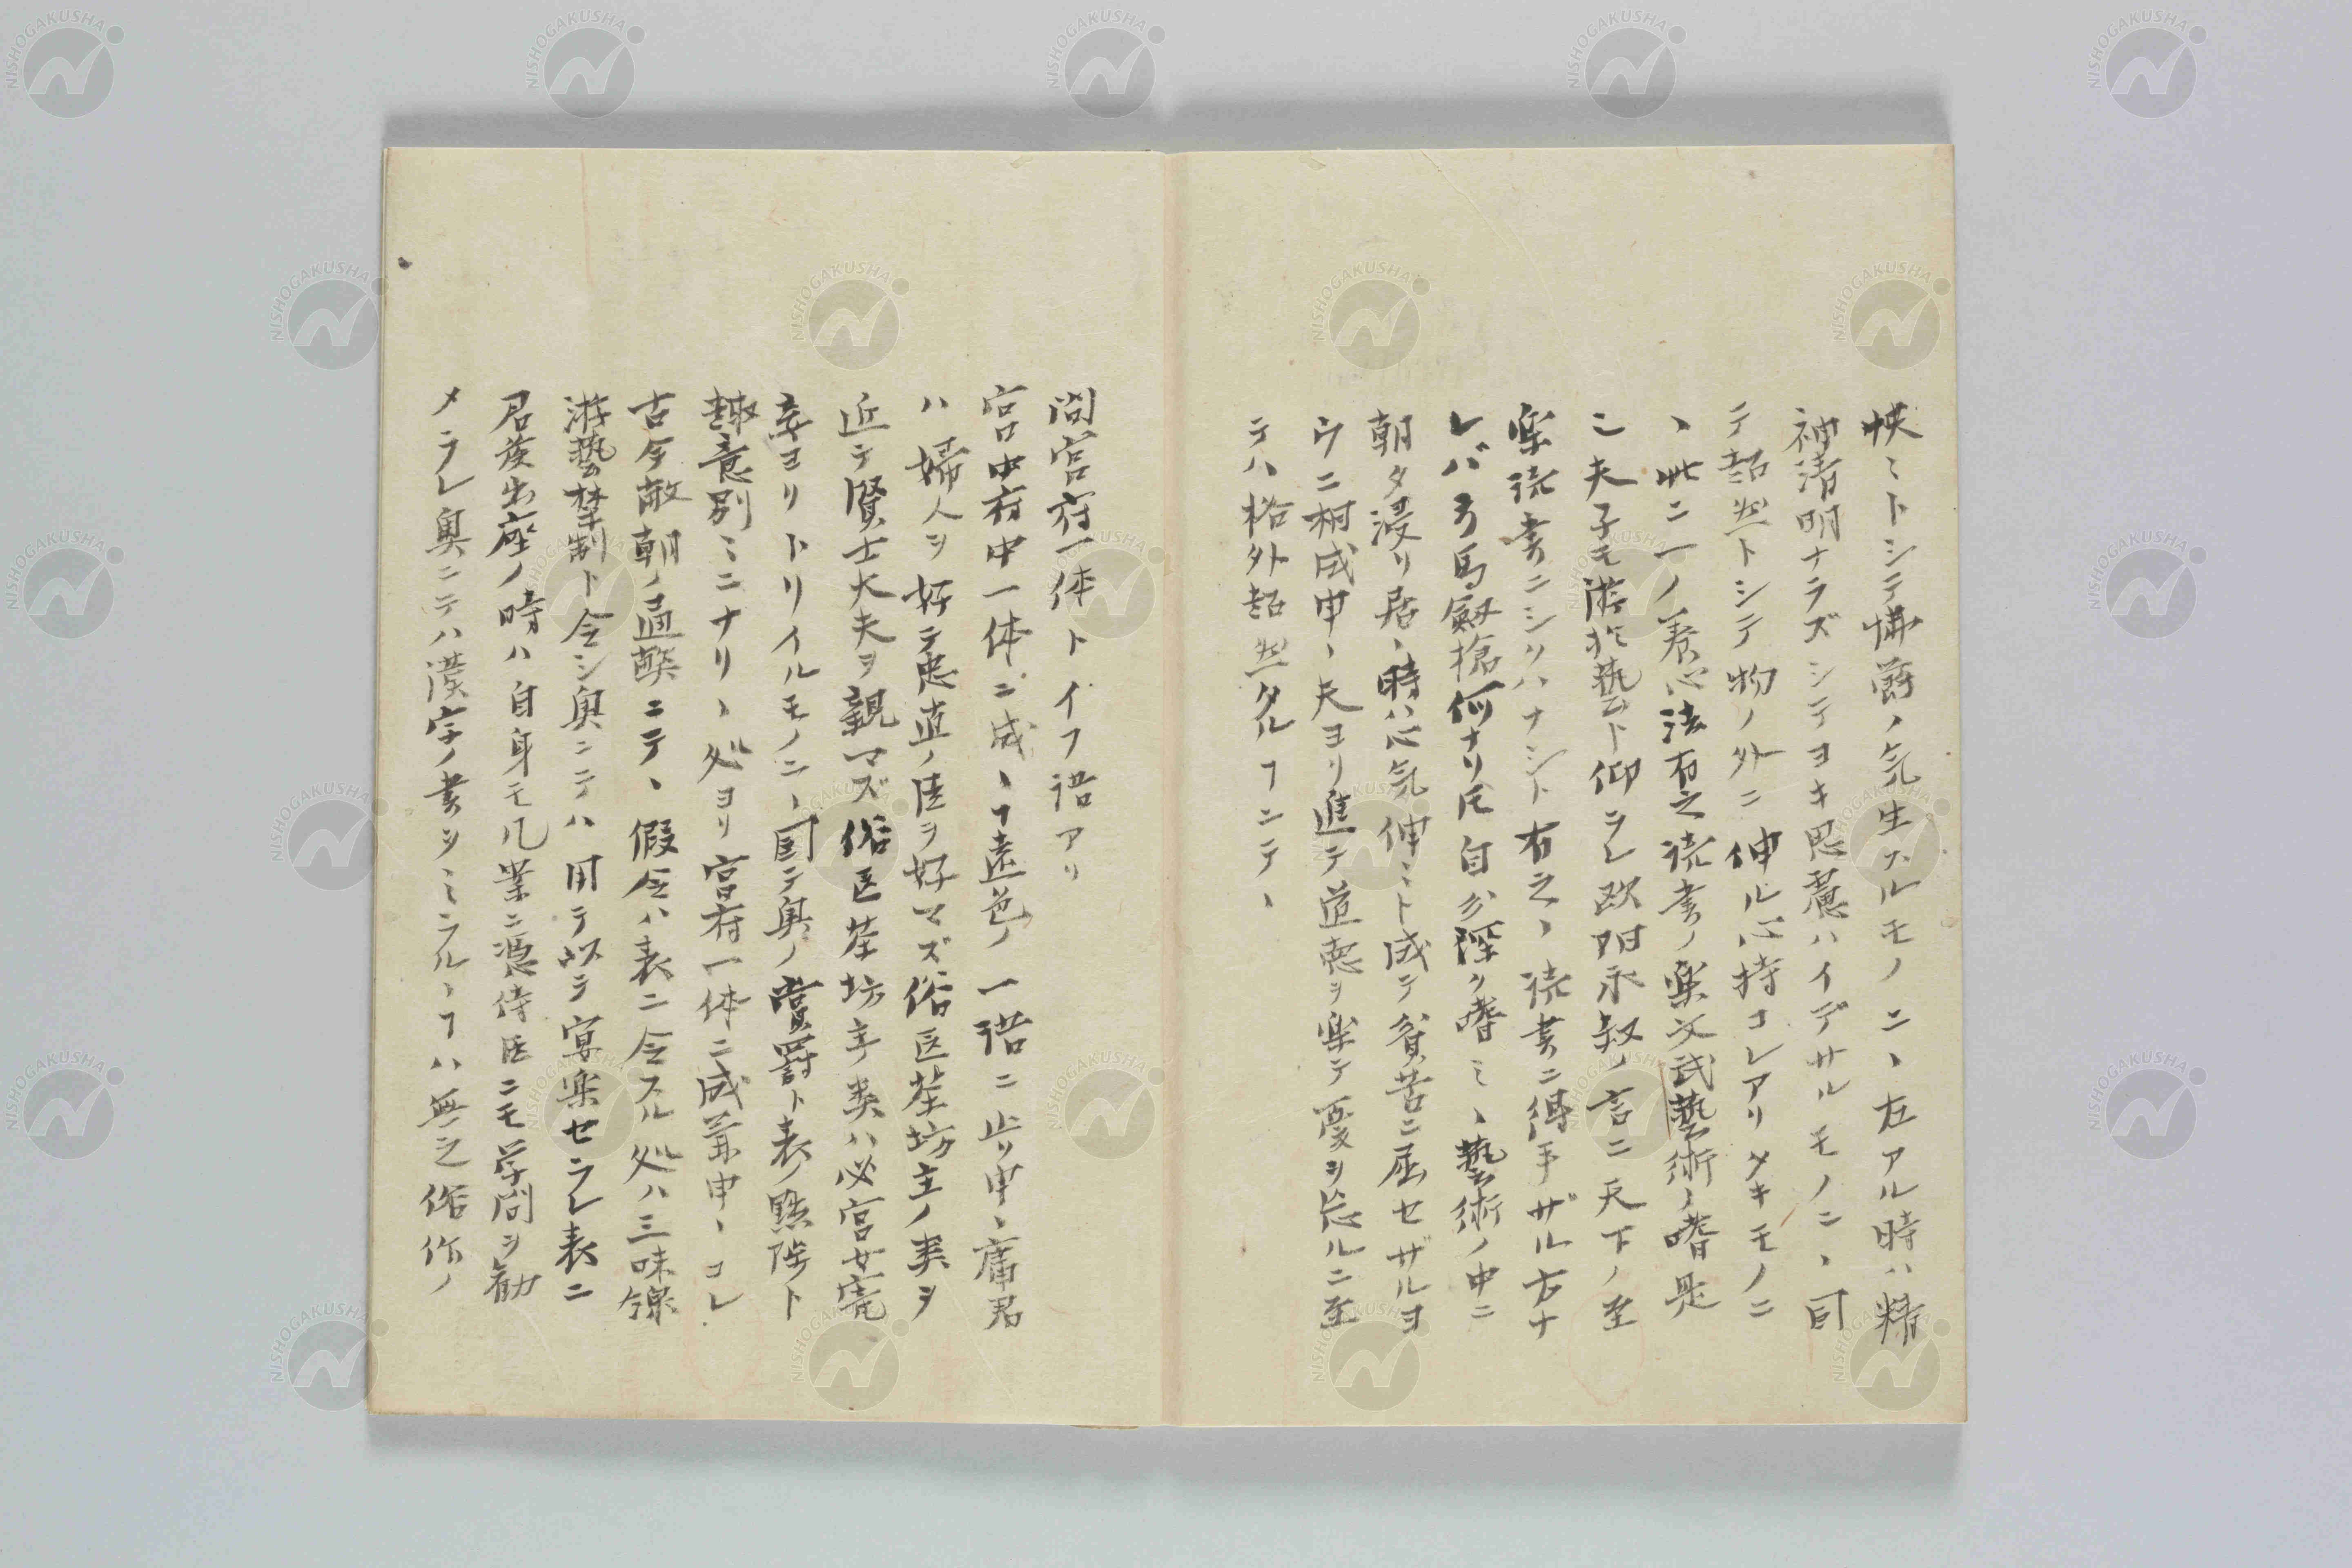 怏〻トシテ慵欝ノ気生スルモノニヽ左アル時ハ精
神清明ナラズシテヨキ思慮ハイデサルモノニヽ因
テ超然トシテ物ノ外ニ伸ル心持コレアリタキモノニ
ヽ此ニ一ノ養心法有之読書ノ楽文武藝術ノ嗜是
ニ夫子モ游於藝ト仰ラレ欧陽永叔ノ言ニ天下ノ至
楽読書ニシクハナシト有之ヽ読書ニ得手ザル方ナ
レバ弓馬劔槍何ナリ𪜈自分深ク嗜ミヽ藝術ノ中ニ
朝夕浸リ居ヽ時ハ心気伸〻ト成テ貧苦ニ屈セザルヨ
ウニ相成申ヽ夫ヨリ進テ道徳ヲ楽テ憂ヲ忘ルニ至
テハ格外超然タルヿニテヽ
問宮府一体トイフ語アリ
宮中府中一体ニ成ヽヿ遠色ノ一語ニ止リ申ヽ庸君
ハ婦人ヲ好テ忠直ノ臣ヲ好マズ俗医茶坊主ノ類ヲ
近テ賢士大夫ヲ親マズ俗医茶坊主類ハ必宮女寵
妾ヨリトリイルモノニヽ因テ奥ノ賞爵ト表ノ黜陟ト
趣意別〻ニナリヽ処ヨリ宮府一体ニ成兼申ヽコレ
古今敝朝ノ通弊ニテヽ假令ハ表ニ令スル処ハ三味線
游藝禁制ト令シ奥ニテハ用テ以テ宴楽セラレ表ニ
君侯出座ノ時ハ自身モ几案ニ憑侍医ニモ学問ヲ勧
メラレ奥ニテハ漢字ノ書ヲミラルヽヿハ無之俗作ノ
NISHOGAKUSHA